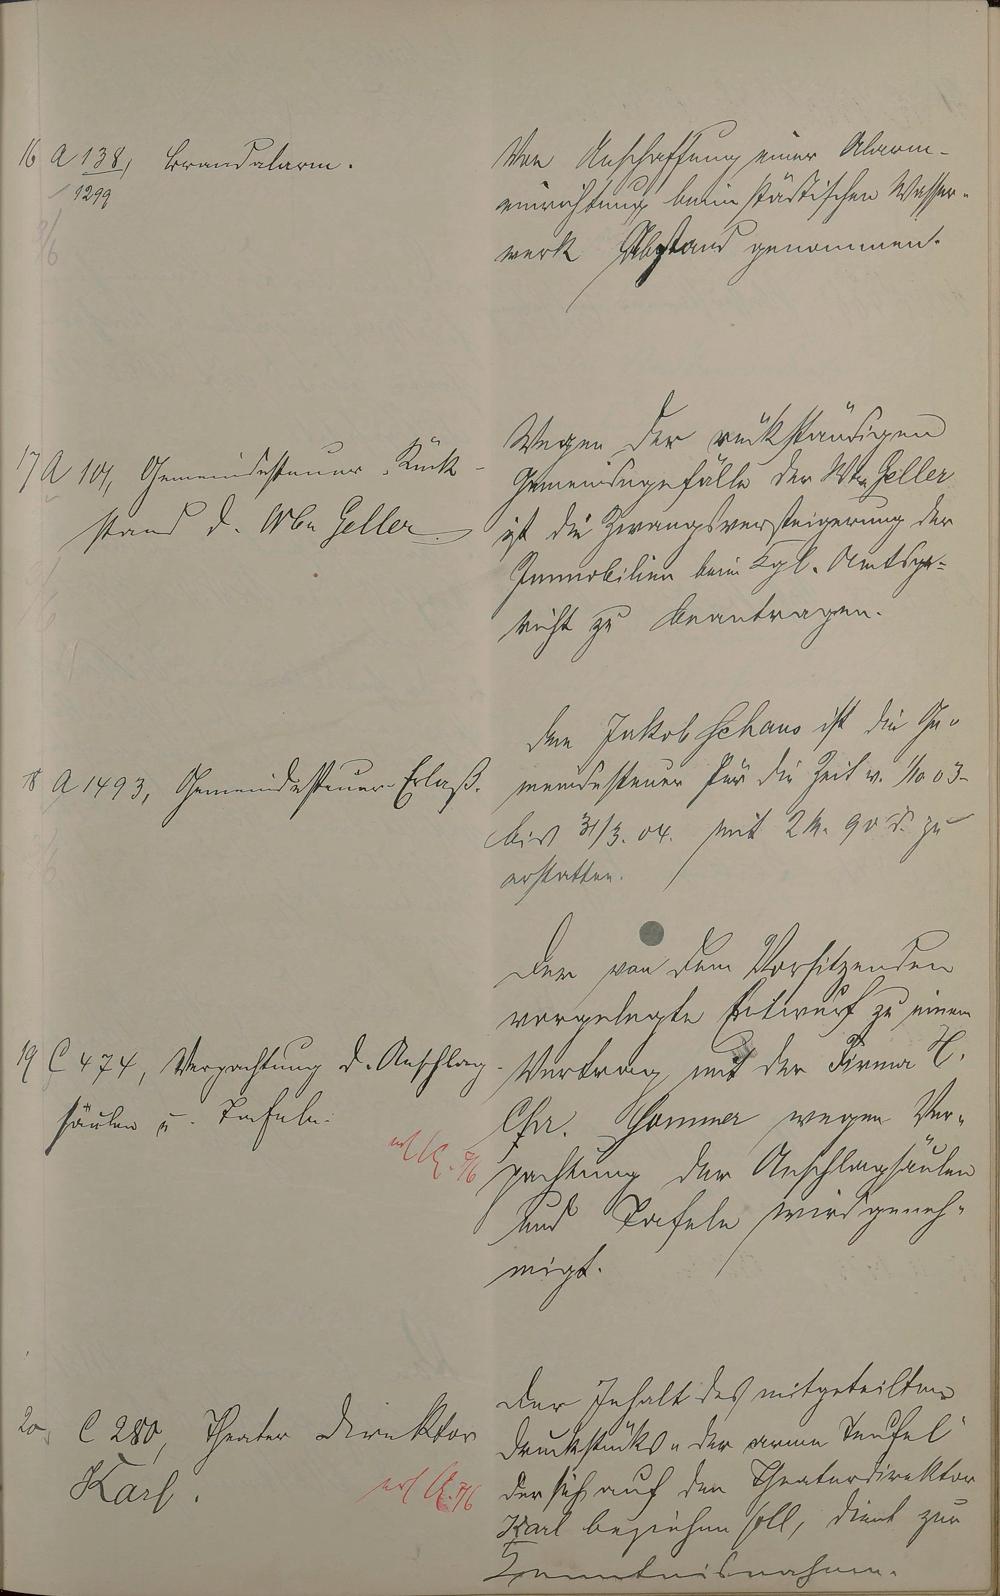 16 A 138, Brandalarm.
1299
Von Anschaffung einer Alarm-
einrichtung beim städtischen Wasser-
werk Abstand genommen.
17 A 101, Gemeindesteuer-Rück-
stand d. Wbe Geller.
Wegen der rückständigen
Gemeindegefälle der Wbe Geller
ist die Zwangsversteigerung der
Immobilien beim Kgl. Amtsge-
richt zu beantragen.
18 A 1493, Gemeindesteuer-Erlaß.
Dem Jakob Schaus ist die Ge-
meindesteuer für die Zeit v. 1/10 03
bis 31/3. 04. mit 2 M. 90 d. zu
erstatten.
19 C 474, Verpachtung d. Anschlag-
säulen u. Tafeln.
7/6
Der von dem Vorsitzenden
vorgelegte Entwurf zu einem
Vertrag mit der Firma H.
Chr. Sommer wegen Ver-
pachtung der Anschlagsäulen
und Tafeln wird geneh-
migt.
20, C 280, Theater Direktor
Karl.
7/6
Der Inhalt des mitgeteilten
Druckstücks „der arme Teufel"
der sich auf den Theaterdirektor
Karl beziehen soll, dient zur
Kenntnisnahme.